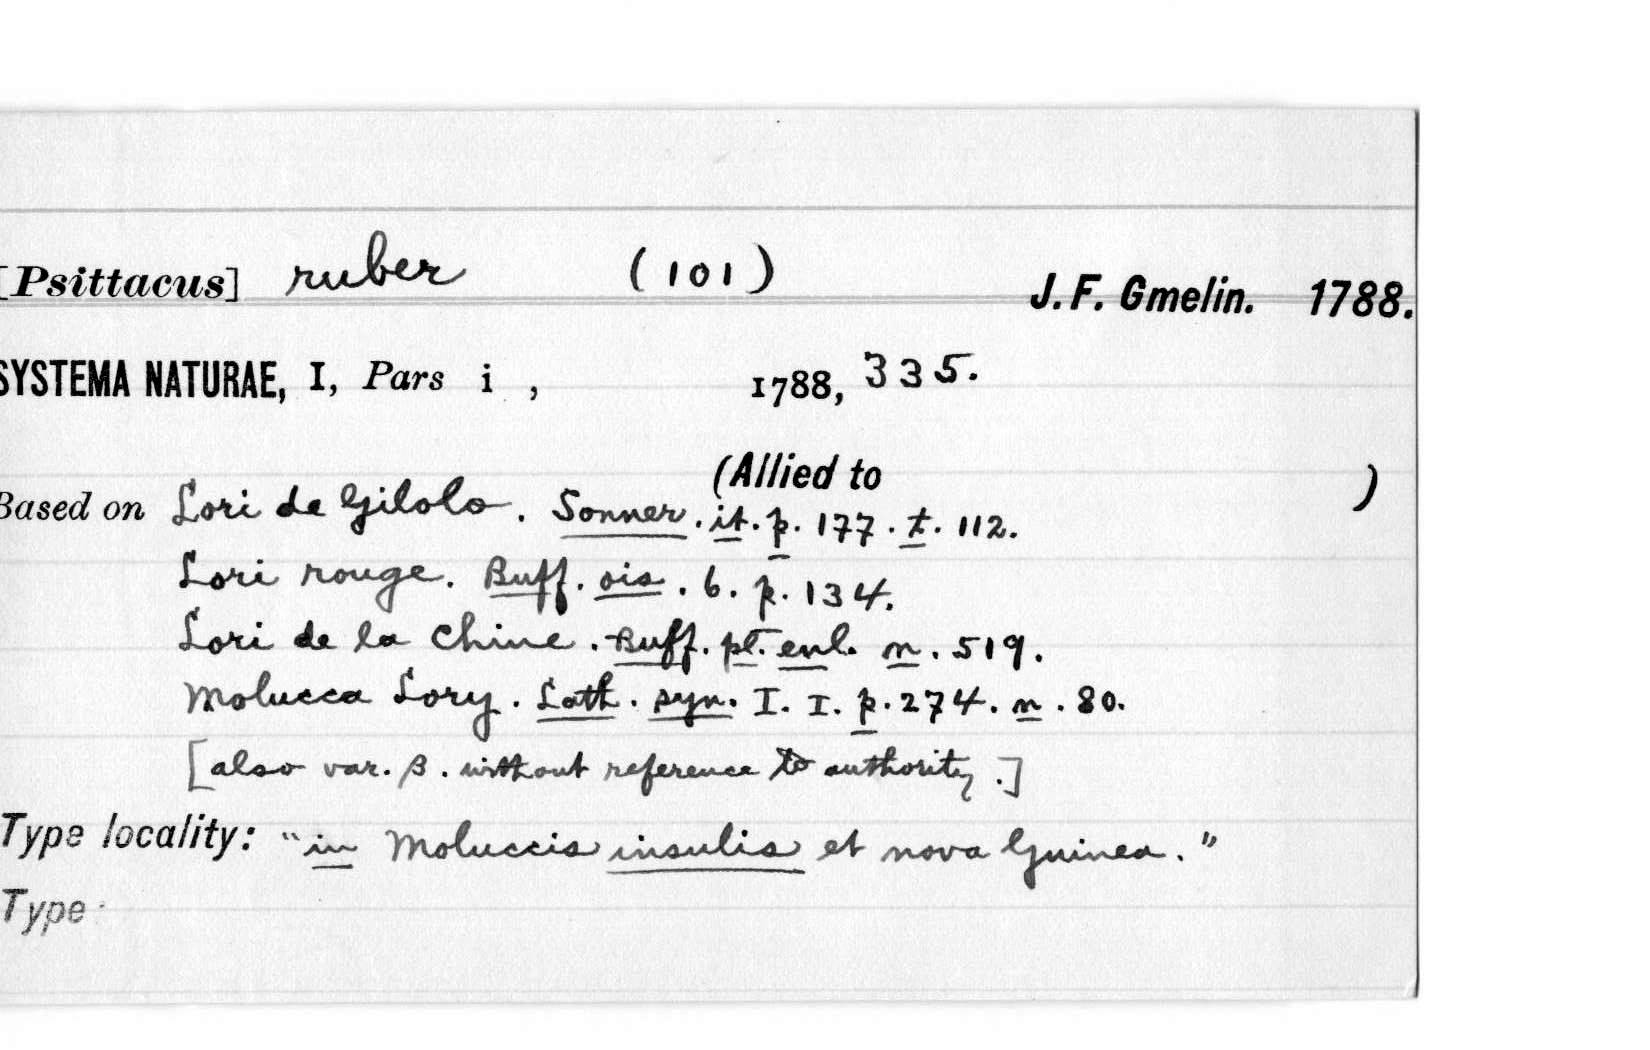 [Psittacus] ruber (101) J. F. Gmelin. 1788.
SYSTEMA NATURAE, I, Pars i , 1788, 335.
(Allied to )
Based on Lori de Gilolo. Sonner. it. p. 177. t. 112.
Lori rouge. Buff. ois. 6. p. 134.
Lori de la Chine. Buff. pl. enl. n. 519.
Molucca Lory. Lath. syn. I. I. p. 274. n. 80.
[also var. β. without reference to authority.]
Type locality: "in Moluccis insulis et nova Guinea."
Type: